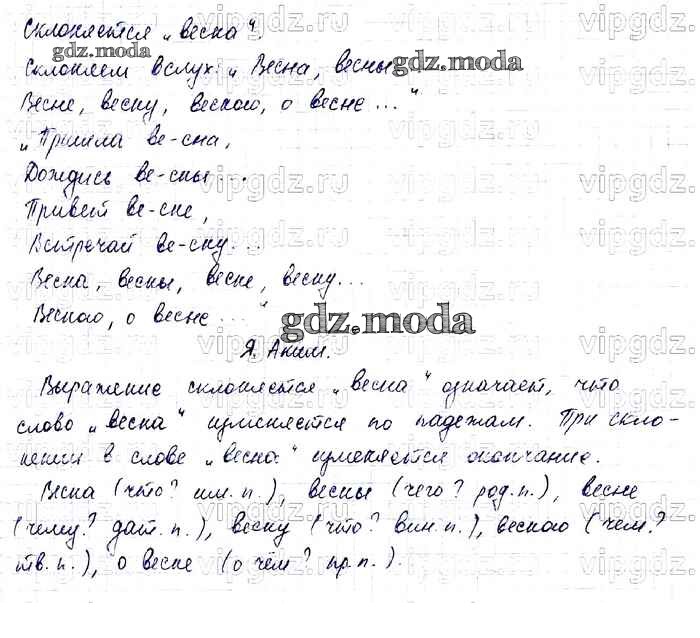 Склоняется „весна“.
Склоняем вслух: „Весна, весны...
Весне, весну, весною, о весне ..."
„Пришла ве-сна,
Дождись ве-сны ...
Привет ве-сне,
Встречай ве-сну...
Весна, весны, весне, весну...
Весною, о весне ..."
Я. Аким.
Выражение склоняется „весна“ означает, что
слово „весна“ изменяется по падежам. При скло-
нении в слове „весна“ изменяется окончание.
Весна (что? им. п.), весны (чего? род. п.), весне
(чему? дат. п.), весну (что? вин. п.), весною (чем?
тв. п.), о весне (о чём? пр. п.).
gdz.moda
gdz.moda
gdz.moda
vipgdz.ru